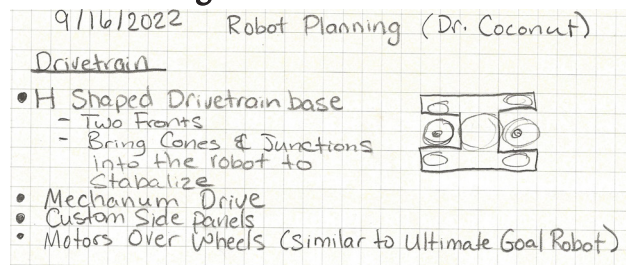 9/16/2022 Robot Planning (Dr. Coconut)
Drivetrain
• H Shaped Drivetrain base
- Two Fronts
- Bring Cones & Junctions
into the robot to
Stabalize
• Mechanum Drive
• Custom Side Panels
• Motors Over Wheels (Similar to Ultimate Goal Robot)